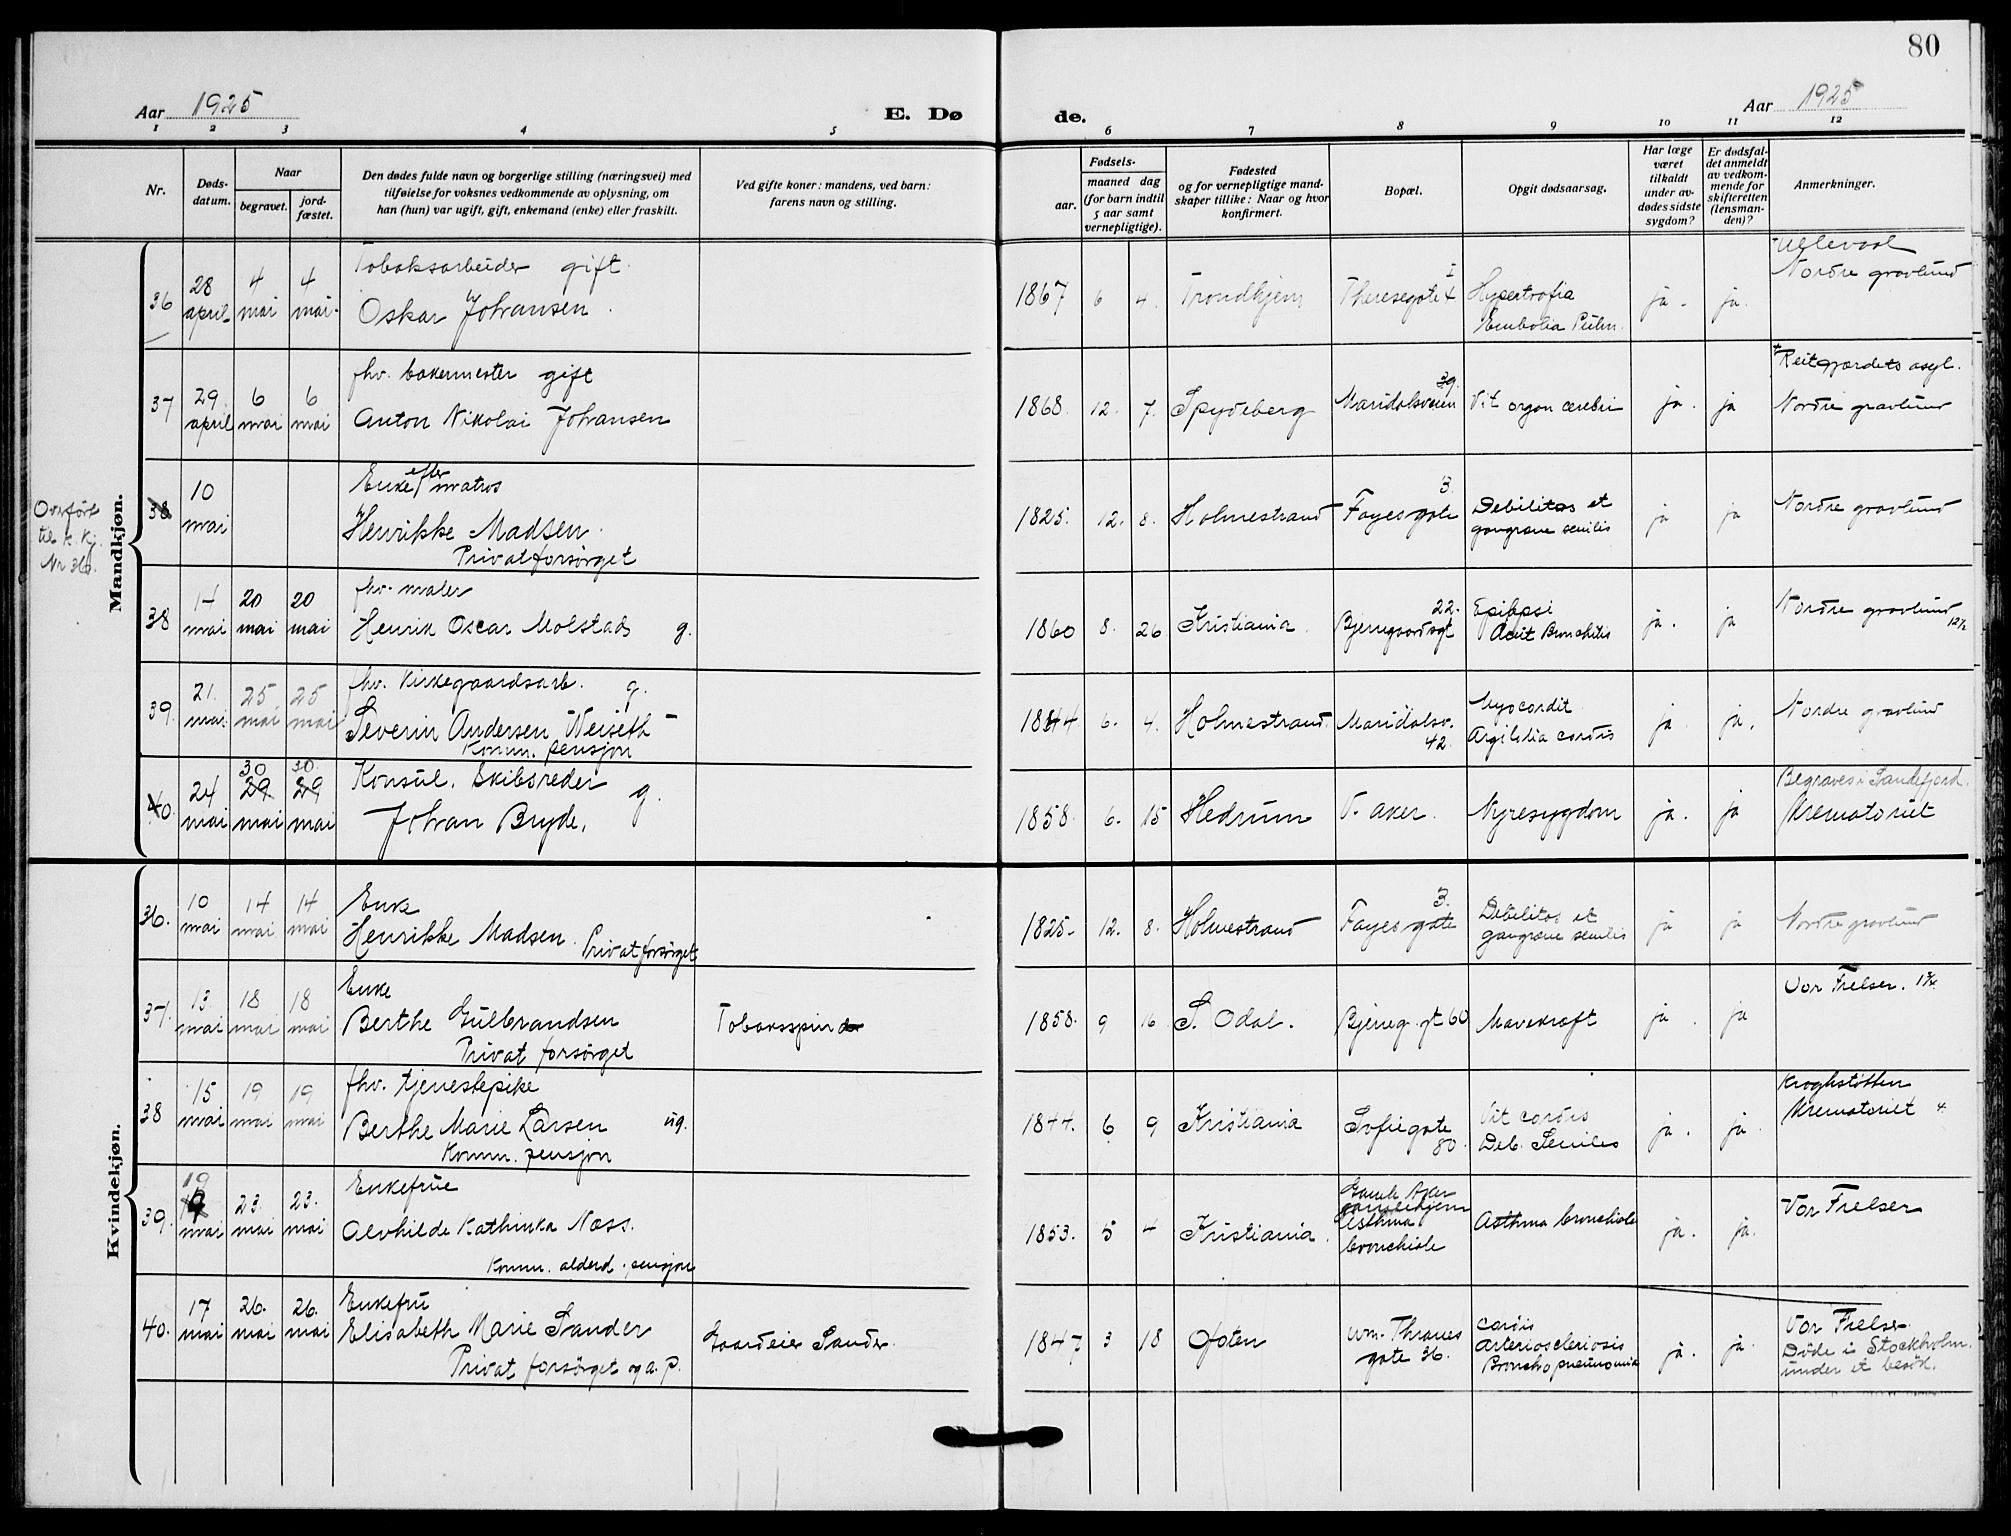 80
Aar 1925
E. Dø
de.
Aar 1925
1 2 3 4 5 6 7 8 9 10 11 12
Nr.
Døds-
datum.
Naar
begravet.
jord-
fæstet.
Den dødes fulde navn og borgerlige stilling (næringsvei) med
tilføielse for voksnes vedkommende av oplysning, om
han (hun) var ugift, gift, enkemand (enke) eller fraskilt.
Ved gifte koner: mandens, ved barn:
farens navn og stilling.
Fødsels-
aar.
maaned dag
(for barn indtil
5 aar samt
vernepligtige).
Fødested
og for vernepligtige mand-
skaper tillike: Naar og hvor
konfirmert.
Bopæl.
Opgit dødsaarsag.
Har læge
været
tilkaldt
under av-
dødes sidste
sygdom?
Er dødsfal-
det anmeldt
av vedkom-
mende for
skifteretten
(lensman-
den)?
Anmerkninger.
Mandkjøn.
36 28 april 4 mai 4 mai
Tobaksarbeider gift.
Oskar Johansen
1867 6 4 Trondhjem Theresegate Hypertrofia
Embolia Pulm.
ja ja
Ullevaal
Nordre gravlund
37 29 april 6 mai 6 mai
fhv. bakermester gift
Anton Nikolai Johansen
1868. 12. 7. Spydeberg Maridalsveien 39. Vit. organ cerebri ja ja
Reitgjærdets asyl.
Nordre gravlund
Overført
til K. Kj.
Nr 36.
38 10 mai
Enke efter matros
Henrikke Madsen.
Privat forsørget
1825. 12. 8. Holmestrand Fayes gate 3. Debilitas et
gangræne senilis
ja ja Nordre gravlund
38 14 mai 20 mai 20 mai
fhv. maler
Henrik Oscar Molstad g.
1860 8. 26 Kristiania. Bjerregaardsgt 22. Epilepsi
Acut Bronchitis
ja. ja Nordre gravlund 12½
39. 21. mai 25 mai 25 mai
fhv. Kirkegaardsarb. g.
Severin Andersen Weiseth
Komm. pensjon
1844 6. 4. Holmestrand Maridalsv. 42. Myocordit
cordis
ja ja. Nordre gravlund
40. 24 mai 30 29 mai 30. 29 mai
Konsul. Skibsreder g.
Johan Bryde.
1858. 6. 15 Hedrum V. Aker. Nyresygdom ja. ja
Begraves i Sandefjord.
Krematoriet
Kvindekjøn.
36. 10 mai 14 mai 14 mai
Enke
Henrikke Madsen. Privat forsørget
1825. 12. 8. Holmestrand Fayes gate 3. Debilitas et
gangræne senilis
ja ja Nordre gravlund
37. 13. mai 18 mai 18 mai
Enke
Berthe Gulbrandsen
Privat forsørget
Tobaksspinder
1858. 9 16 S. Odal. Bjerreg. gt 60 Mavekræft ja. ja Vor Frelser.
38 15 mai 19 mai 19 mai
fhv. tjenestepike
Berthe Marie Larsen ug.
Komm. pensjon
1844. 6 9 Kristiania Sofiegate 80. Vit. cordis
Deb. Seniles
ja. ja
Kroghstøtten
Krematoriet 4
39. 19 mai 23 mai 23. mai
Enkefrue
Alvhilde Kathinka Næss.
Komm. alderd. pensjon
1853. 5 4 Kristiania. Gamle Aker
Asthma
bronchiale
Asthma bronchiale ja. ja. Vor Frelser
40. 17 mai 26. mai 26. mai
Enkefru
Elisabeth Marie Sander
Privat forsørget og a. p.
Gaardeier Sander.
1847 3 18 Ofoten Wm. Thranes
gate 36.
cordis
arteriosclerosis
Bronchopneumonia
ja. ja.
Vor Frelser
Døde i Stockholm.
under et besøk.